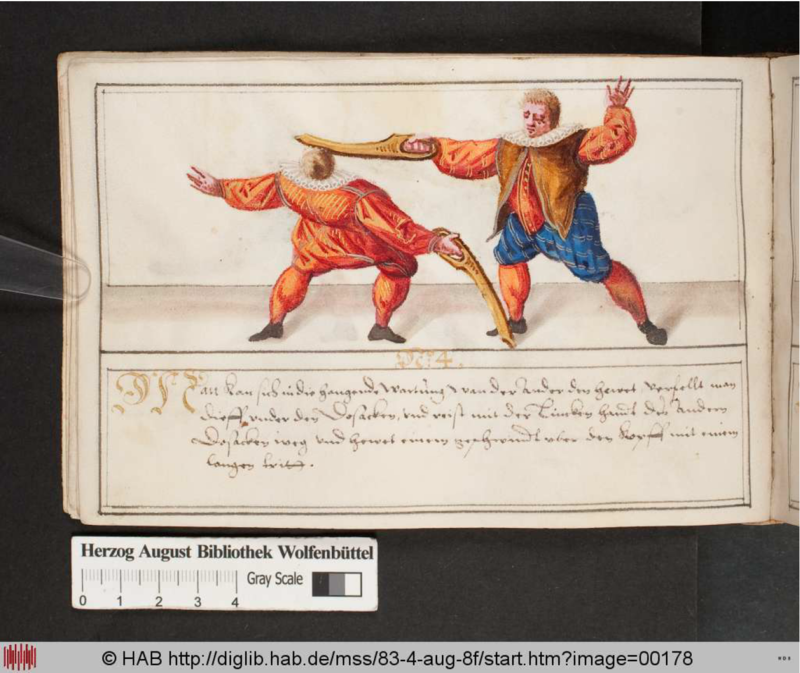 N° 4.
Man kan sich in die hangende Wartung, wan der Ander den hewet, verfellt man
dieff vnder den Dosacken, vnd reist mit der Lincken handt des Andern
Dosacken weg vnd hewet einem geschwindt vber den Kopff mit einem
langen tritt.
Herzog August Bibliothek Wolfenbüttel
Gray Scale
0 1 2 3 4
© HAB http://diglib.hab.de/mss/83-4-aug-8f/start.htm?image=00178